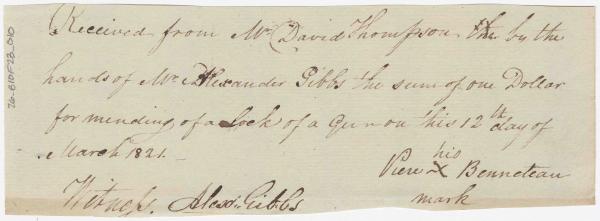 Received from Mr David Thompson by the
hands of Mr Alexander Gibbs the sum of one Dollar
for mending of a Lock of a Gun on this 12th day of
March 1821.
Piere his X Benneteau
mark
Witness. Alexr Gibbs
26-B10F23_010